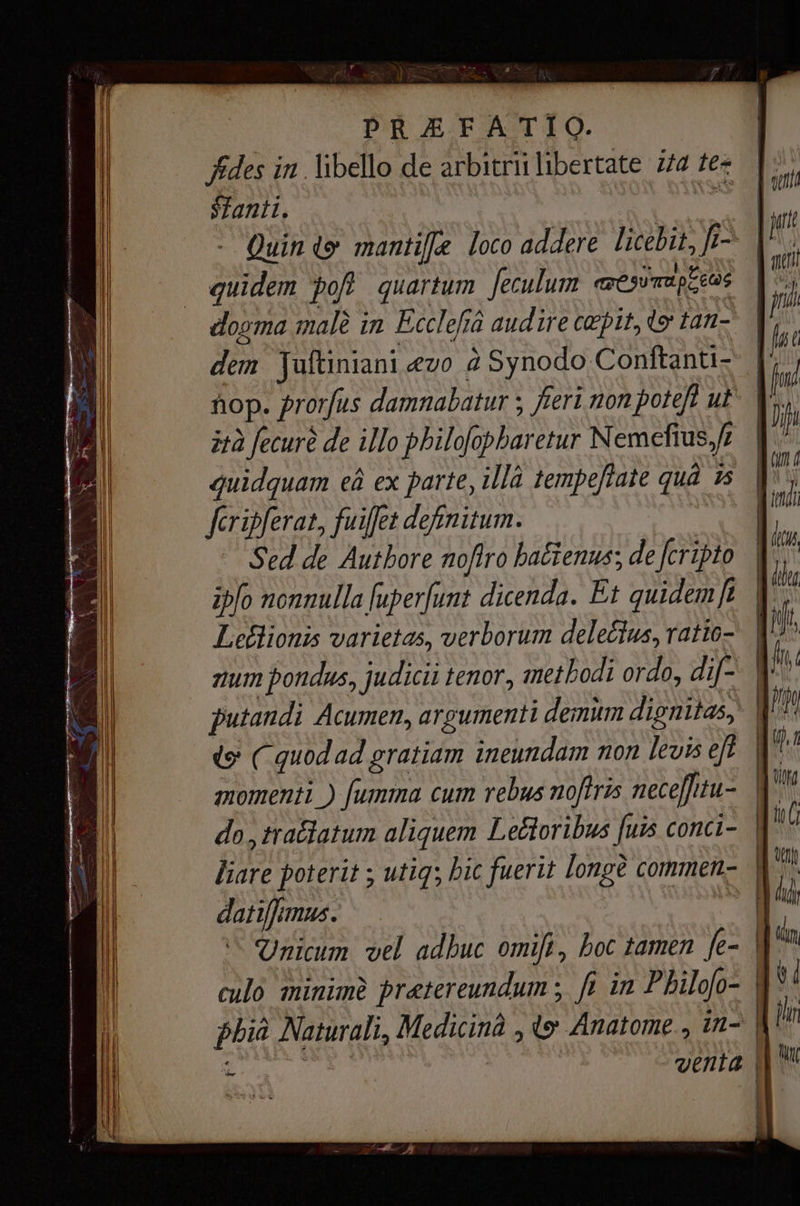 PRÆFATIO.
fides in libello de arbitrii libertate ita te-
ſtanti.
Quin & mantiſſæ loco addere licebit, ſi-
quidem poſt quartum ſeculum προϋπάρξεως
dogma malè in Eccleſiâ audire cœpit, & tan-
dem Juſtiniani ævo à Synodo Conſtanti-
nop. prorſus damnabatur ; fieri non poteſt ut
ità ſecurè de illo philoſopharetur Nemeſius, ſi
quidquam eâ ex parte, illâ tempeſtate quâ is
ſcripſerat, fuiſſet definitum.
Sed de Authore noſtro hactenus; de ſcripto
ipſo nonnulla ſuperſunt dicenda. Et quidem ſi
Lectionis varietas, verborum delectus, ratio-
num pondus, judicii tenor, methodi ordo, diſ-
putandi Acumen, argumenti demùm dignitas,
& ( quod ad gratiam ineundam non levis eſt
momenti ) ſumma cum rebus noſtris neceſſitu-
do, tractatum aliquem Lectoribus ſuis conci-
liare poterit ; utiq; hic fuerit longè commen-
datiſſimus.
Unicum vel adhuc omiſi, hoc tamen ſe-
culo minimè prætereundum ; ſi in Philoſo-
phiâ Naturali, Medicinâ , & Anatome , in-
venta